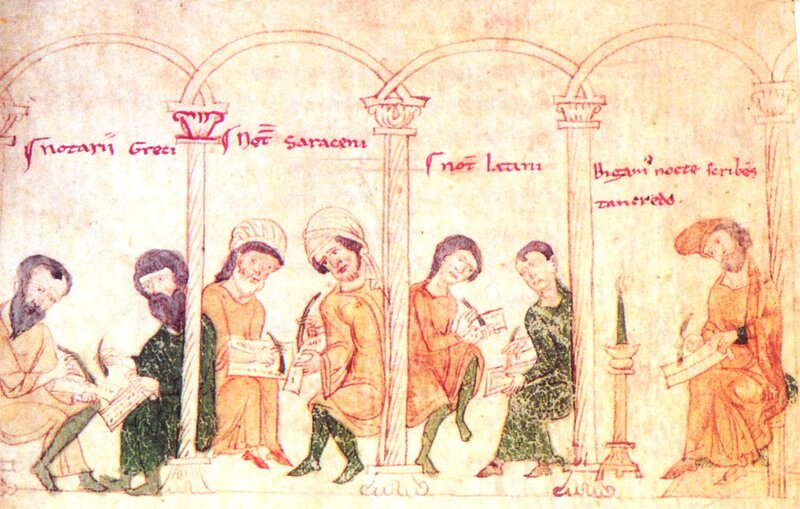 notarii Greci
Not Saraceni
not latini
Bigamꝰ nocte scribēs
tancredo.